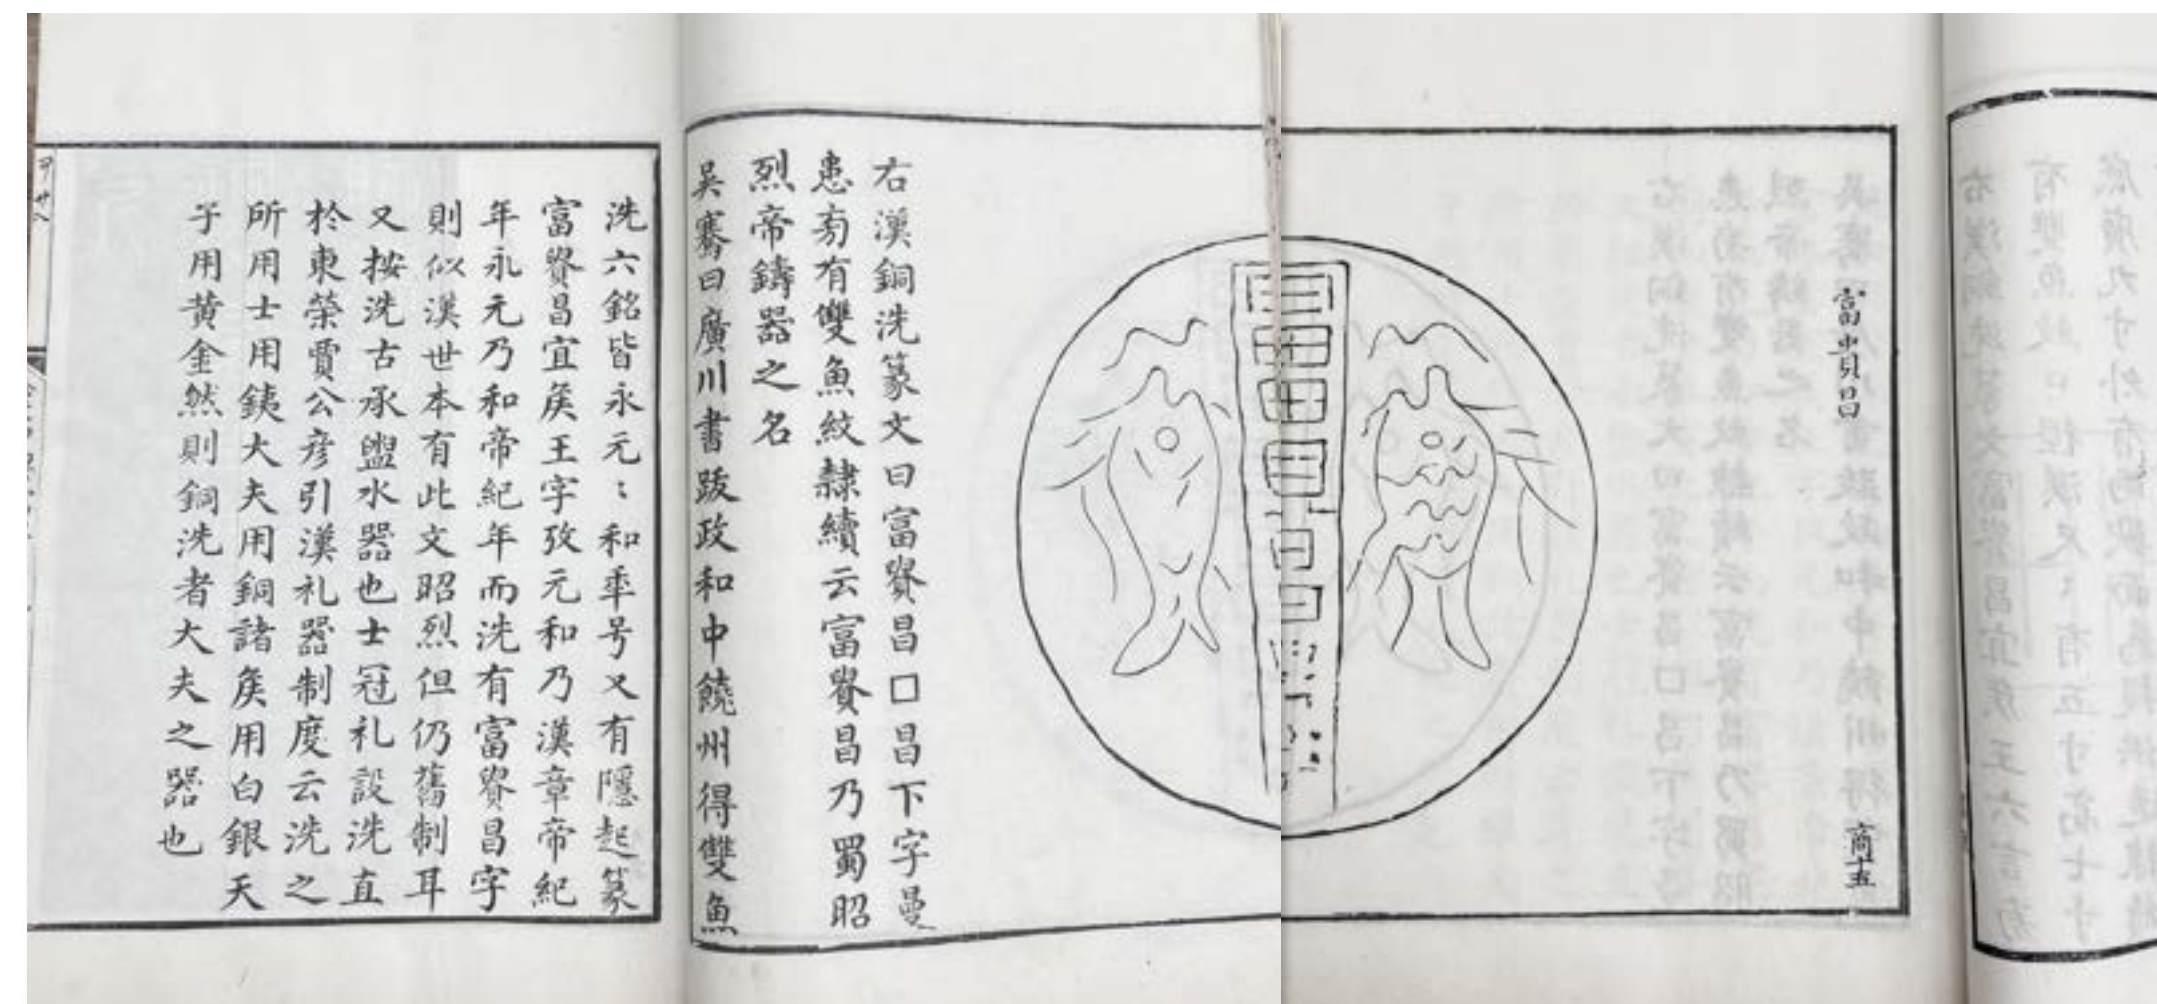 富貴昌
商十五
右漢銅洗篆文曰富貴昌口昌下字曼
患旁有雙魚紋隸續云富貴昌乃蜀昭
烈帝鑄器之名
吳騫曰廣川書跋政和中饒州得雙魚
洗六銘皆永元〻和年号又有隱起篆
富貴昌宜矦王字攷元和乃漢章帝紀
年永元乃和帝紀年而洗有富貴昌字
則似漢世本有此文昭烈但仍舊制耳
又按洗古承盥水器也士冠礼設洗直
於東榮賈公彥引漢礼器制度云洗之
所用士用銕大夫用銅諸矦用白銀天
子用黄金然則銅洗者大夫之器也